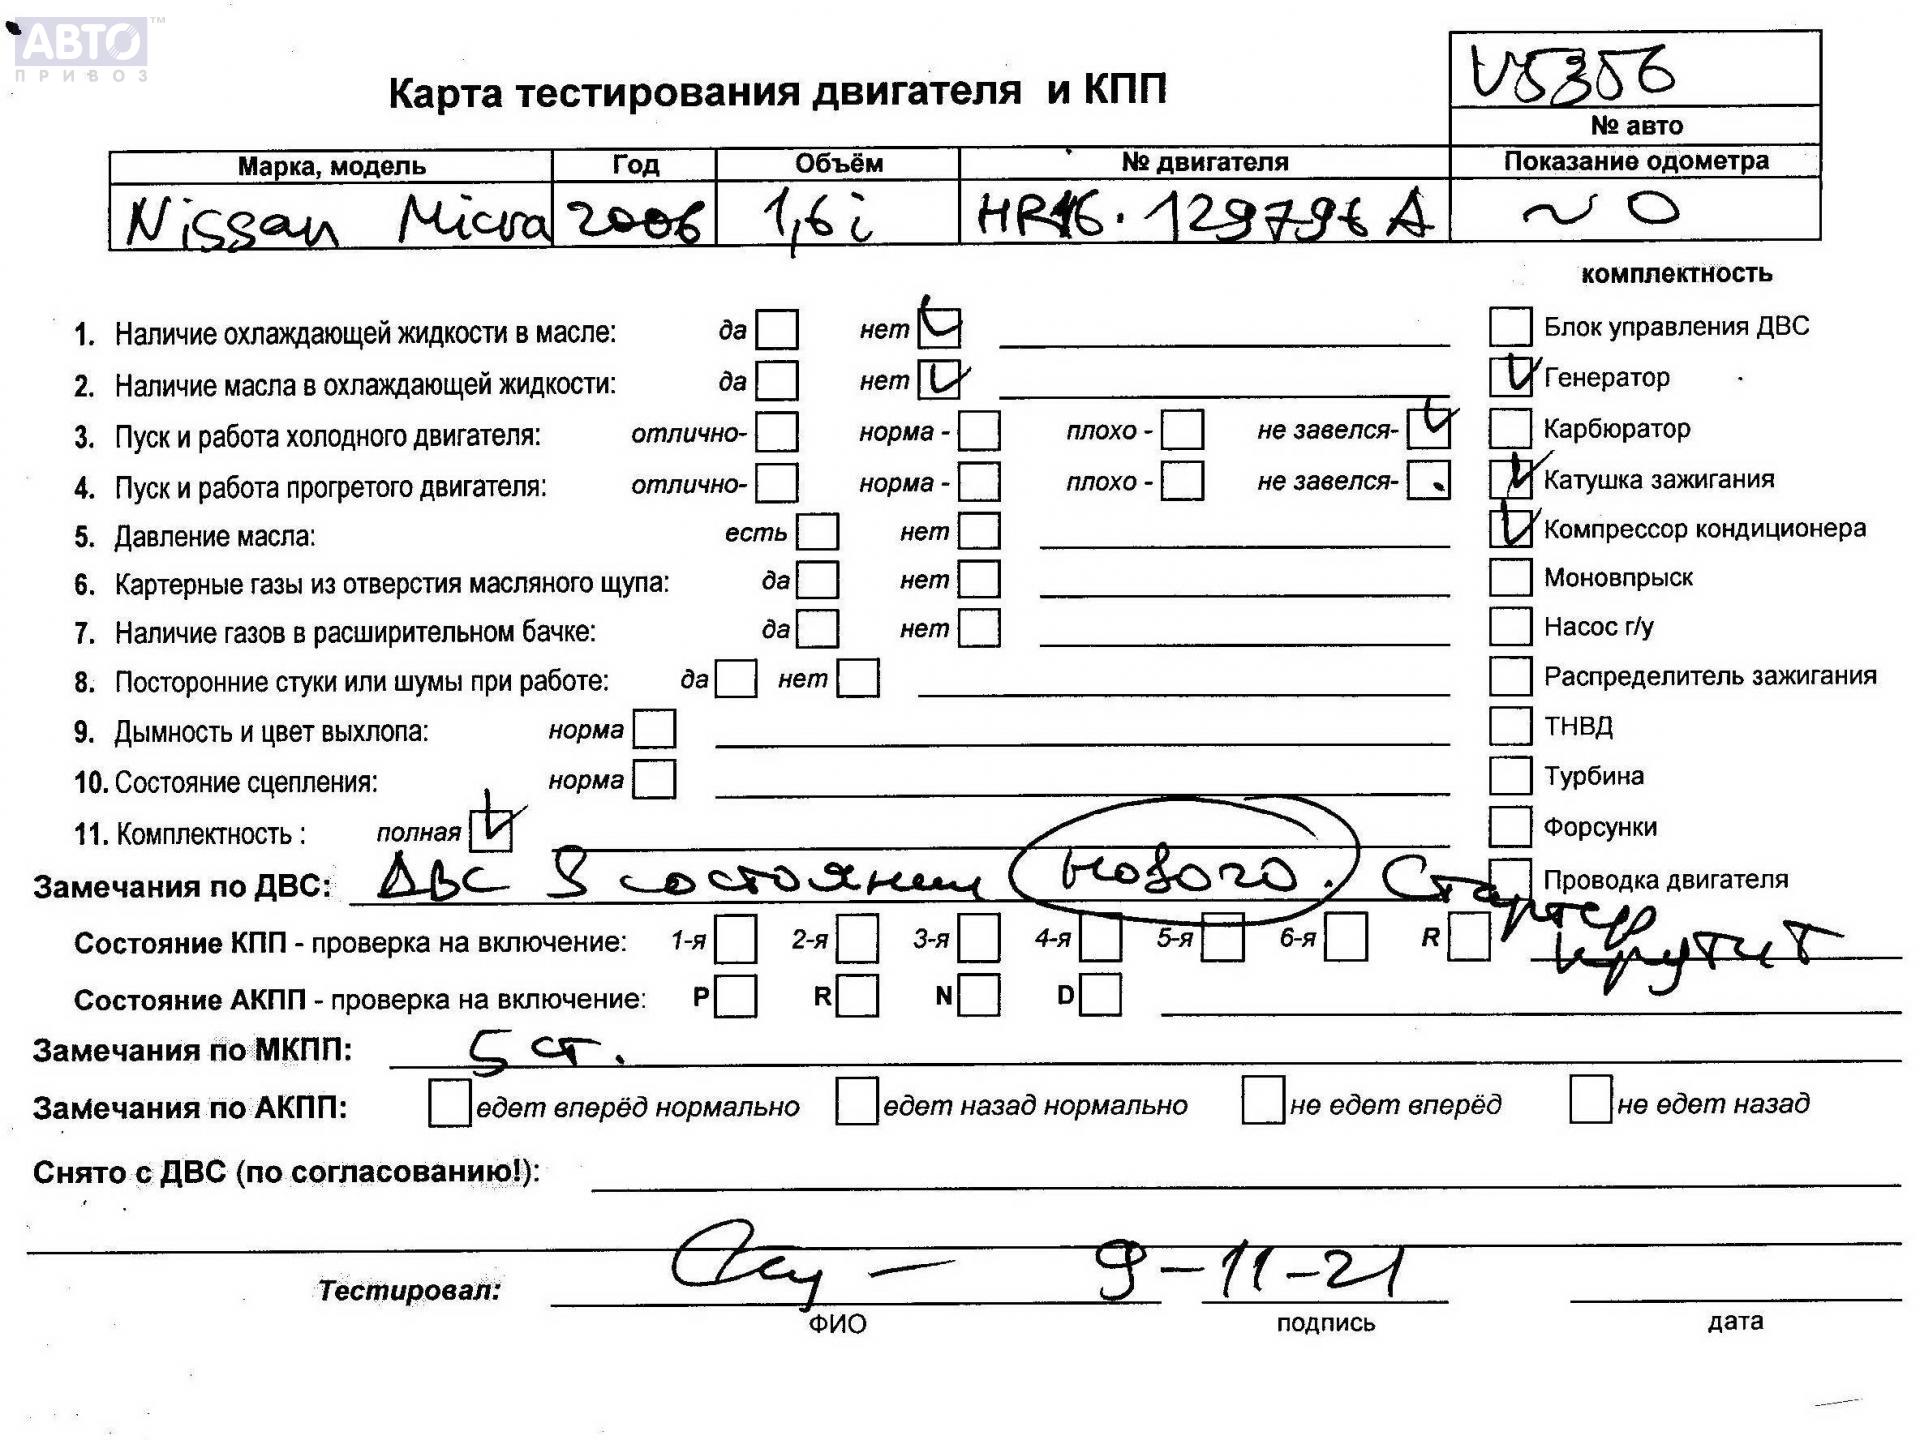 АВТО™
ПРИВОЗ
Карта тестирования двигателя и КПП
V5356
№ авто
Марка, модель Год Объём № двигателя Показание одометра
Nissan Micra 2006 1,6i HR16. 129796 A ~ 0
комплектность
1. Наличие охлаждающей жидкости в масле: да нет Блок управления ДВС
2. Наличие масла в охлаждающей жидкости: да нет Генератор
3. Пуск и работа холодного двигателя: отлично- норма - плохо - не завелся- Карбюратор
4. Пуск и работа прогретого двигателя: отлично- норма - плохо - не завелся- Катушка зажигания
5. Давление масла: есть нет Компрессор кондиционера
6. Картерные газы из отверстия масляного щупа: да нет Моновпрыск
7. Наличие газов в расширительном бачке: да нет Насос г/у
8. Посторонние стуки или шумы при работе: да нет Распределитель зажигания
9. Дымность и цвет выхлопа: норма ТНВД
10. Состояние сцепления: норма Турбина
11. Комплектность : полная Форсунки
Замечания по ДВС: ДВС в состоянии нового. Стартер Проводка двигателя
крутит
Состояние КПП - проверка на включение: 1-я 2-я 3-я 4-я 5-я 6-я R
Состояние АКПП - проверка на включение: P R N D
Замечания по МКПП: 5 ст.
Замечания по АКПП: едет вперёд нормально едет назад нормально не едет вперёд не едет назад
Снято с ДВС (по согласованию!):
Тестировал: 9-11-21
ФИО подпись дата